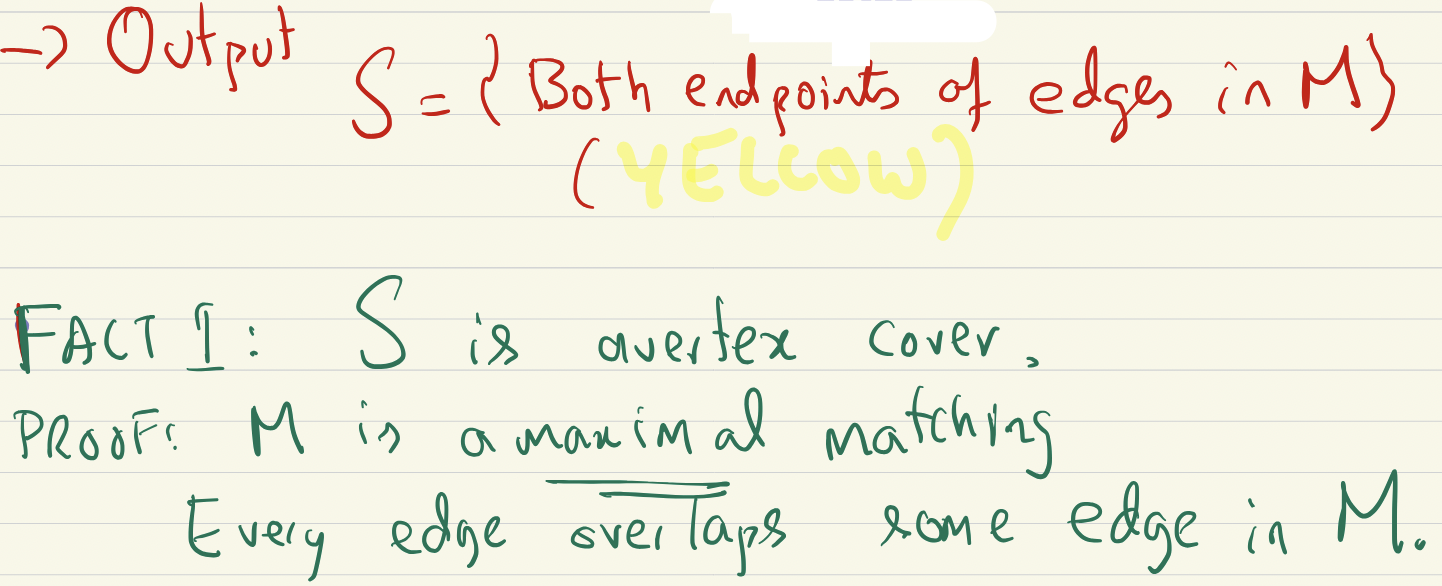 → Output
S = { Both endpoints of edges in M }
(YELLOW)
FACT I: S is a vertex cover.
PROOF: M is a maximal matching
Every edge overlaps some edge in M.